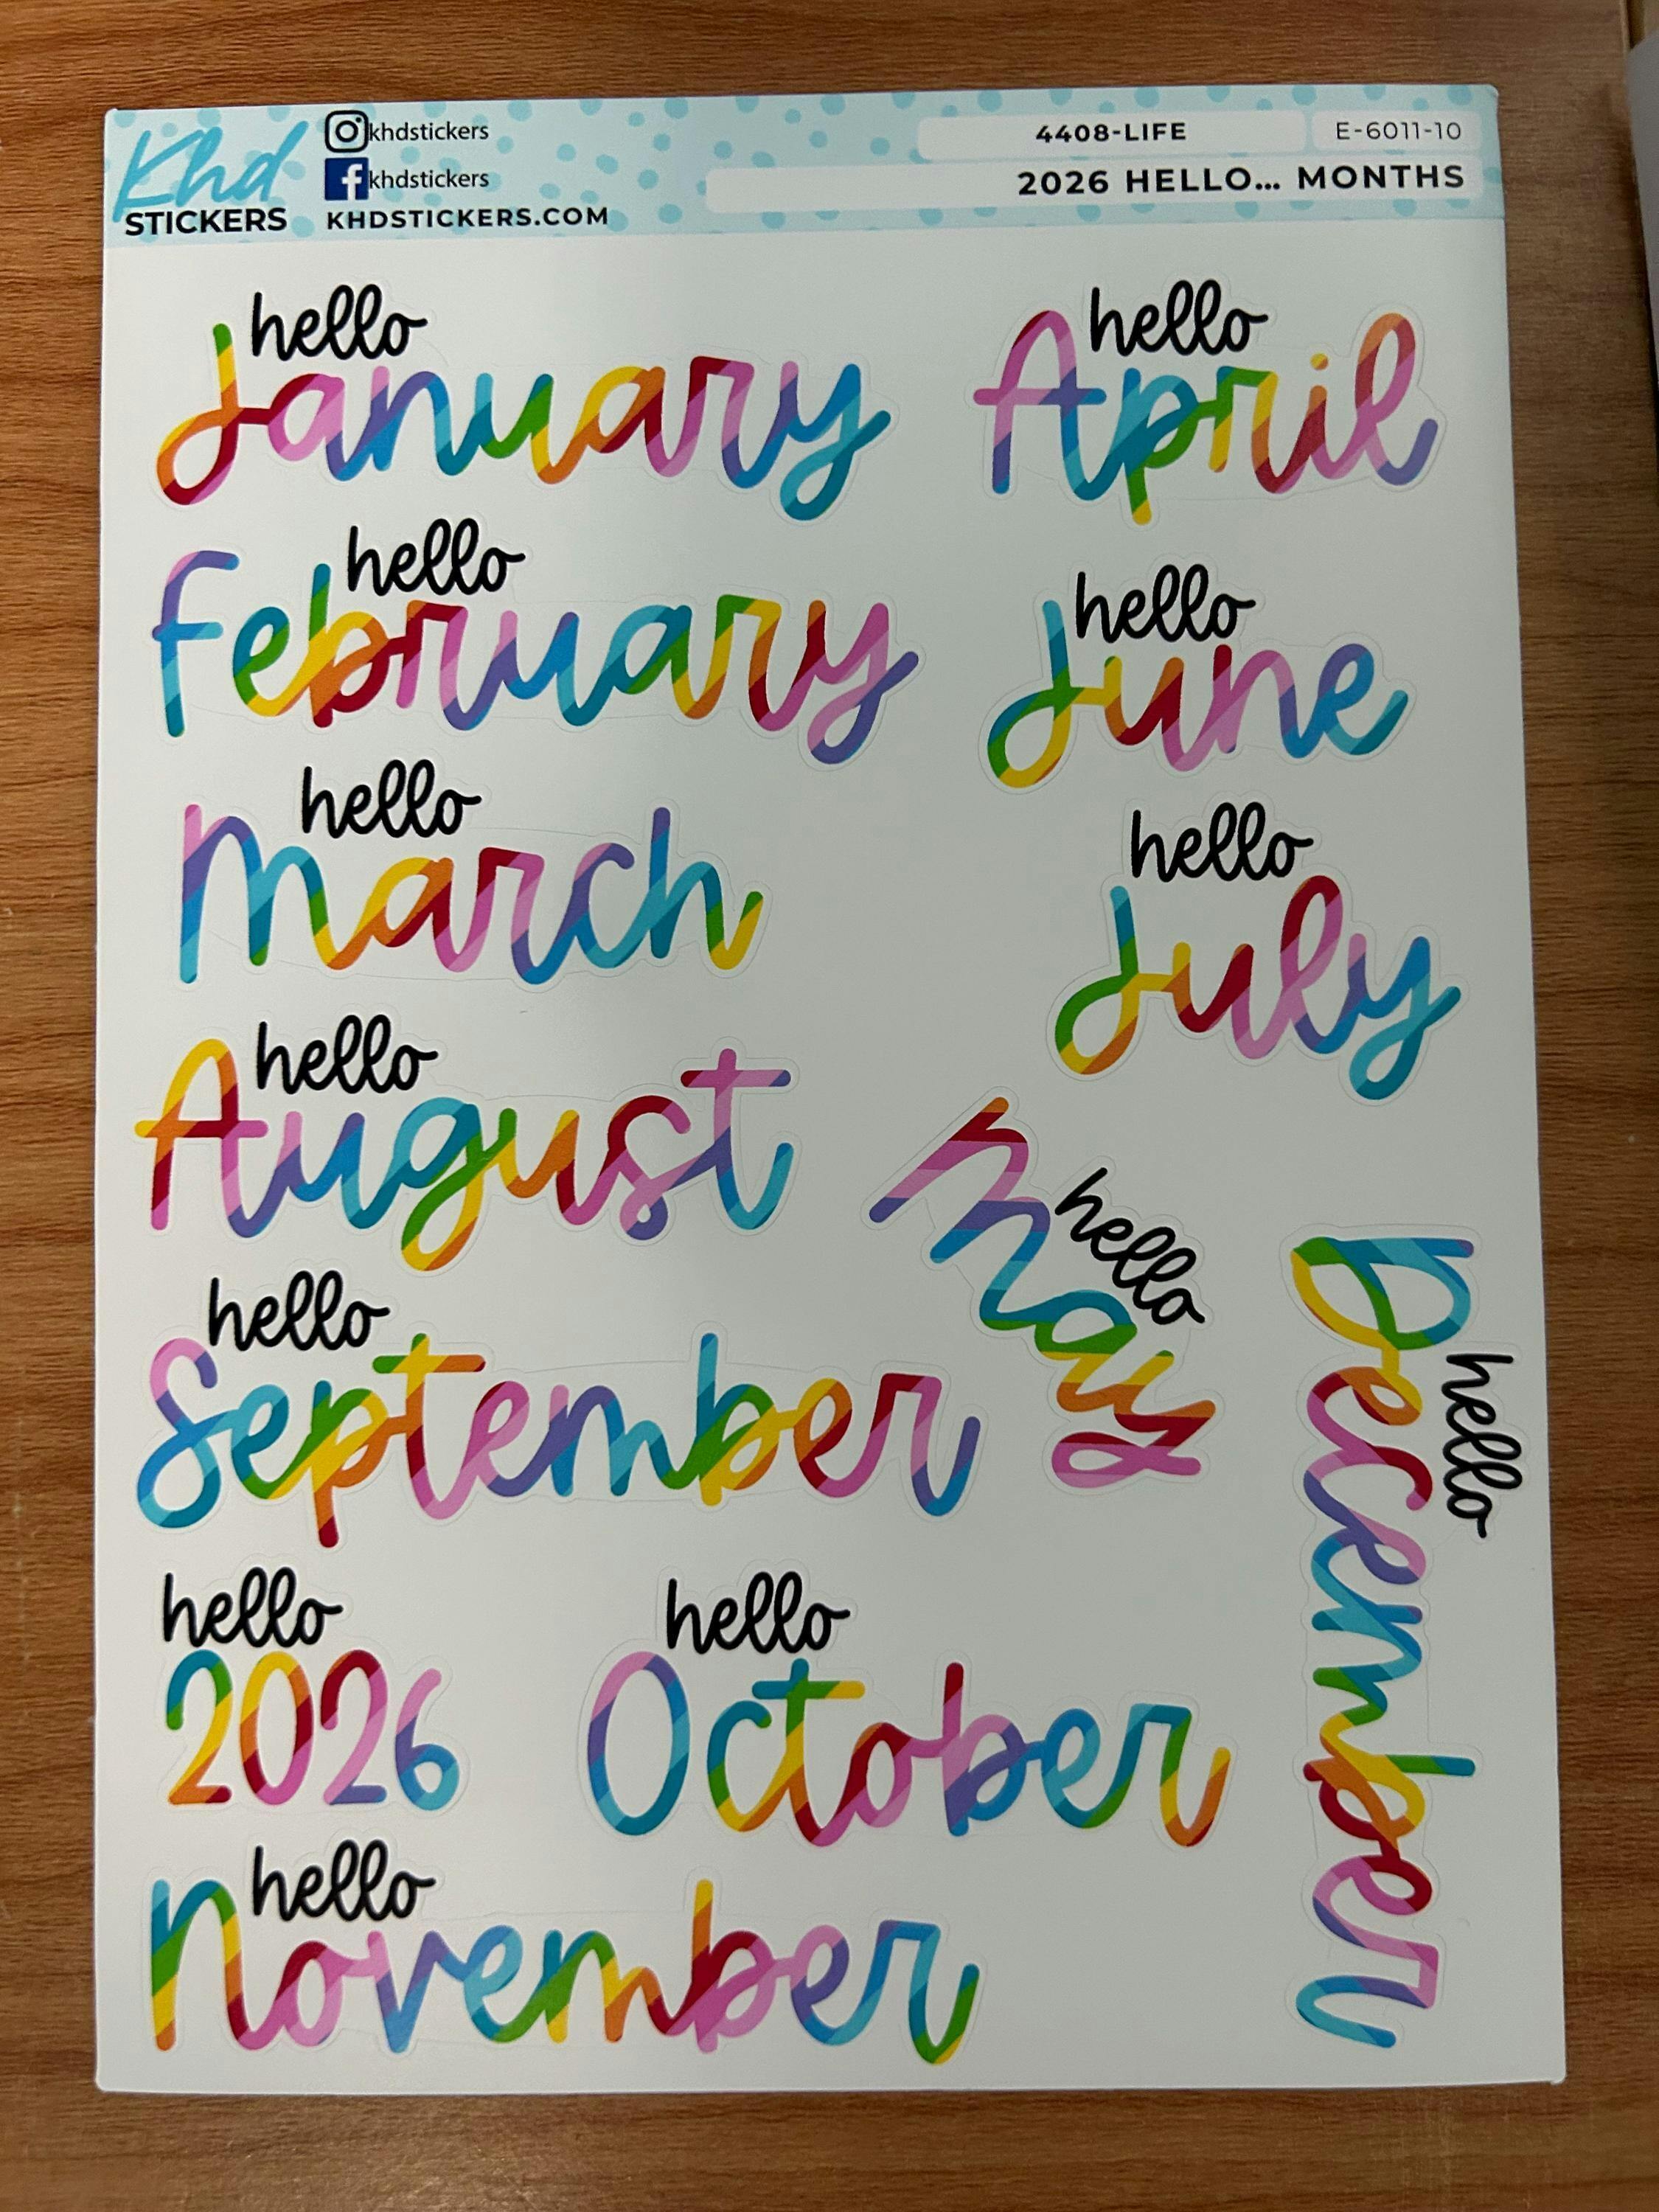 Khd
STICKERS
khdstickers
khdstickers
KHDSTICKERS.COM
4408-LIFE
E-6011-10
2026 HELLO... MONTHS
hello
January
hello
April
hello
February
hello
June
hello
March
hello
July
hello
August
hello
May
hello
September
hello
December
hello
2026
hello
October
hello
November